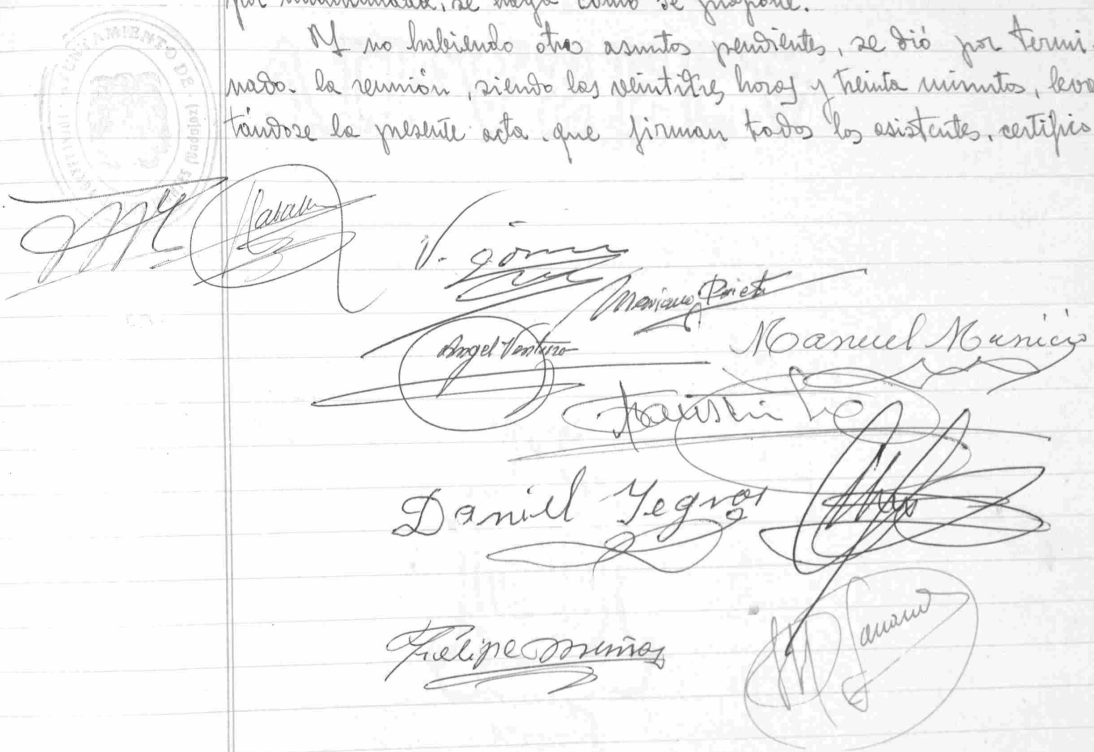 por unanimidad, se haga como se propone.
Y no habiendo otro asuntos pendientes, se dió por termi-
nado la reunión, siendo las veintitres horas y treinta minutos, leva
tándose la presente acta que firman todos los asistentes, certifico
AYUNTAMIENTO DE
(Badajoz)
V. Gómez
Mariano Prieto
Angel Ventura
Manuel Municio
Daniel Yegros
Felipe Muñoz